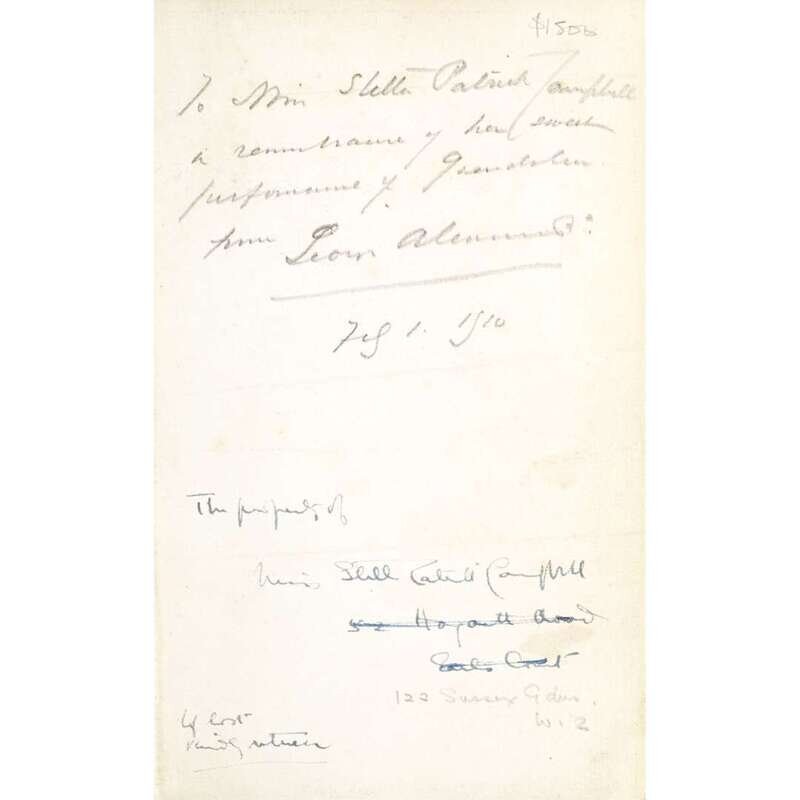 $1500
To Miss Stella Patrick Campbell
a remembrance of her sweet
performance of Gwendolen
from George Alexander
Feb 1. 1910
The property of
Miss Stella Patrick Campbell
Hogarth Road
Earls Court
122 Sussex Gdns.
W. 2
If lost
kindly return